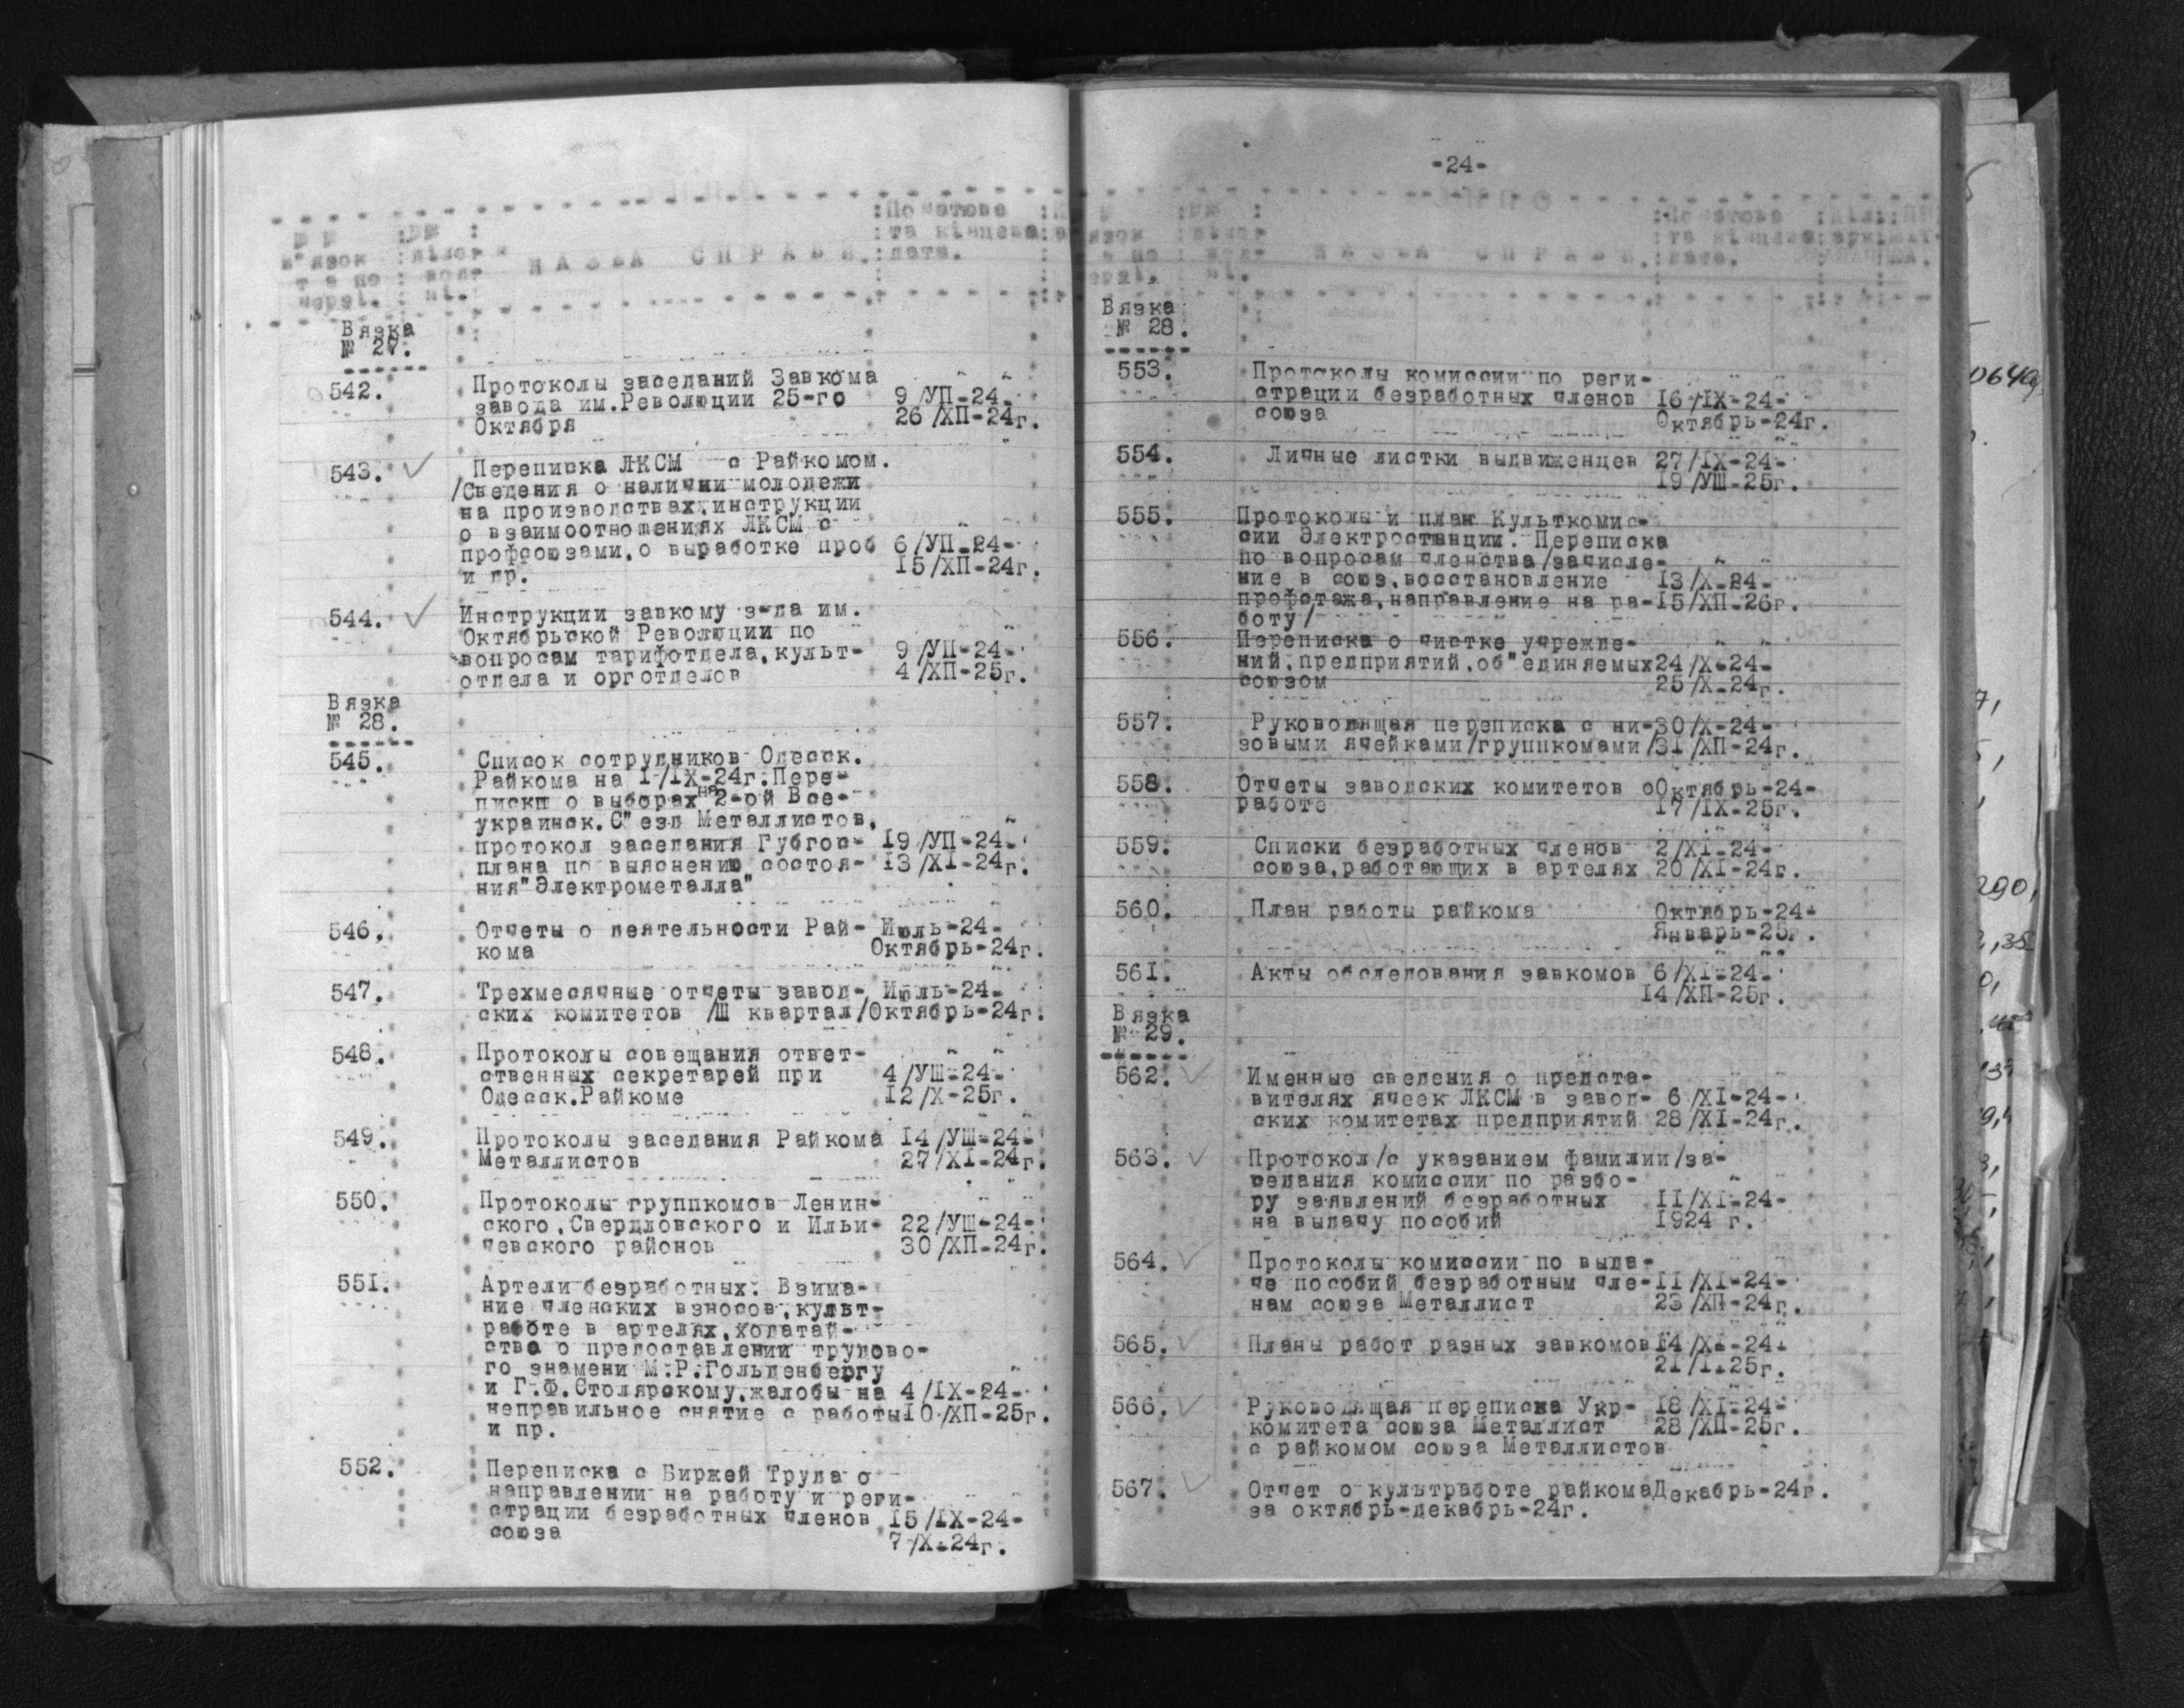 №№ :№№ : :Початова
в"язок :діло- НАЗВА СПРАВИ. :та кінцева
та по :вод- :дата.
черзі. :ні.
Вязка
№ 27.
542. Протоколы заседаний Завкома
завода им.Революции 25-го 9/УП-24-
Октября 26/ХП-24г.
543. Переписка ЛКСМ с Райкомом.
/Сведения о наличии молодежи
на производствах,инструкции
о взаимоотношениях ЛКСМ с
профсоюзами,о выработке проб 6/УП-24-
и пр. 15/ХП-24г.
544. Инструкции завкому з-да им.
Октябрьской Революции по
вопросам тарифотдела,культ- 9/УП-24-
отдела и орготделов 4/ХП-25г.
Вязка
№ 28.
545. Список сотрудников Одесск.
Райкома на I/IX-24г.Пере-
писки о выборах на 2-ой Все-
украинск.С"езд Металлистов,
протокол заседания Губгос- 19/УП-24-
плана по выяснению состоя- 13/XI-24г.
ния"Электрометалла"
546. Отчеты о деятельности Рай- Июль-24-
кома Октябрь-24г.
547. Трехмесячные отчеты завод- Июль-24-
ских комитетов /Ш квартал/Октябрь-24г.
548. Протоколы совещания ответ-
ственных секретарей при 4/УШ-24-
Одесск.Райкоме 12/Х-25г.
549. Протоколы заседания Райкома 14/УШ-24-
Металлистов 27/XI-24г.
550. Протоколы группкомов Ленин-
ского,Свердловского и Ильи- 22/УШ-24-
чевского районов 30/ХП-24г.
551. Артели безработных. Взима-
ние членских взносов,культ-
работе в артелях,ходатай-
ства о предоставлении трудово-
го знамени М.Р.Гольденбергу
и Г.Ф.Столярскому,жалобы на 4/IX-24-
неправильное снятие с работы10/ХП-25г.
и пр.
552. Переписка с Биржей Труда о
направлении на работу и реги-
страции безработных членов 15/IX-24-
союза 7/Х-24г.
-24-
НАЗВА СПРАВИ. :Початова
:та кінцева
:дата.
Вязка
№ 28.
553. Протоколы комиссии по реги-
страции безработных членов 16/IX-24-
союза Октябрь-24г.
554. Личные листки выдвиженцев 27/IX-24-
19/УШ-25г.
555. Протоколы и план Культкомис-
сии Электростанции. Переписка
по вопросам членства/зачисле-
ние в союз,восстановление 13/Х-24-
профстажа,направление на ра-15/ХП-26г.
боту/
556. Переписка о чистке учрежде-
ний,предприятий,об"единяемых24/Х-24-
союзом 25/Х-24г.
557. Руководящая переписка с ни-30/Х-24-
зовыми ячейками/группкомами/31/ХП-24г.
558. Отчеты заводских комитетов оОктябрь-24-
работе 17/IX-25г.
559. Списки безработных членов 2/XI-24-
союза,работающих в артелях 20/XI-24г.
560. План работы райкома Октябрь-24-
Январь-25г.
561. Акты обследования завкомов 6/XI-24-
14/ХП-25г.
Вязка
№ 29.
562. Именные сведения о предста-
вителях ячеек ЛКСМ в завод- 6/XI-24-
ских комитетах предприятий 28/XI-24г.
563. Протокол/с указанием фамилии/за-
седания комиссии по разбо-
ру заявлений безработных 11/XI-24-
на выдачу пособий 1924 г.
564. Протоколы комиссии по выда-
че пособий безработным чле-11/XI-24-
нам союза Металлист 23/ХП-24г.
565. Планы работ разных завкомов14/XI-24-
21/I-25г.
566. Руководящая переписка Укр- 18/XI-24-
комитета союза Металлист 28/ХП-25г.
с райкомом союза Металлистов
567. Отчет о культработе райкомаДекабрь-24г.
за октябрь-декабрь-24г.